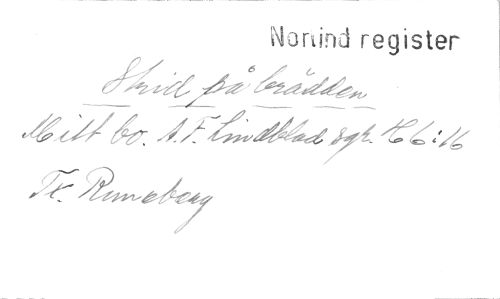 Norlind register
Strid på brädden
Mitt bo. A. F. Lindblad sgr. H 6:16
Tx. Runeberg